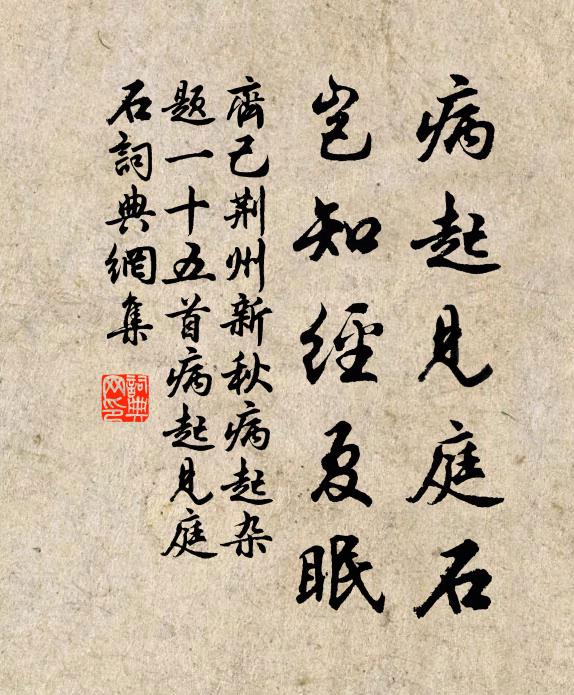 病起見庭石
豈知經夏眠
齊己荆州新秋病起杂
题一十五首病起見庭
石詞典網集
詞典
网印